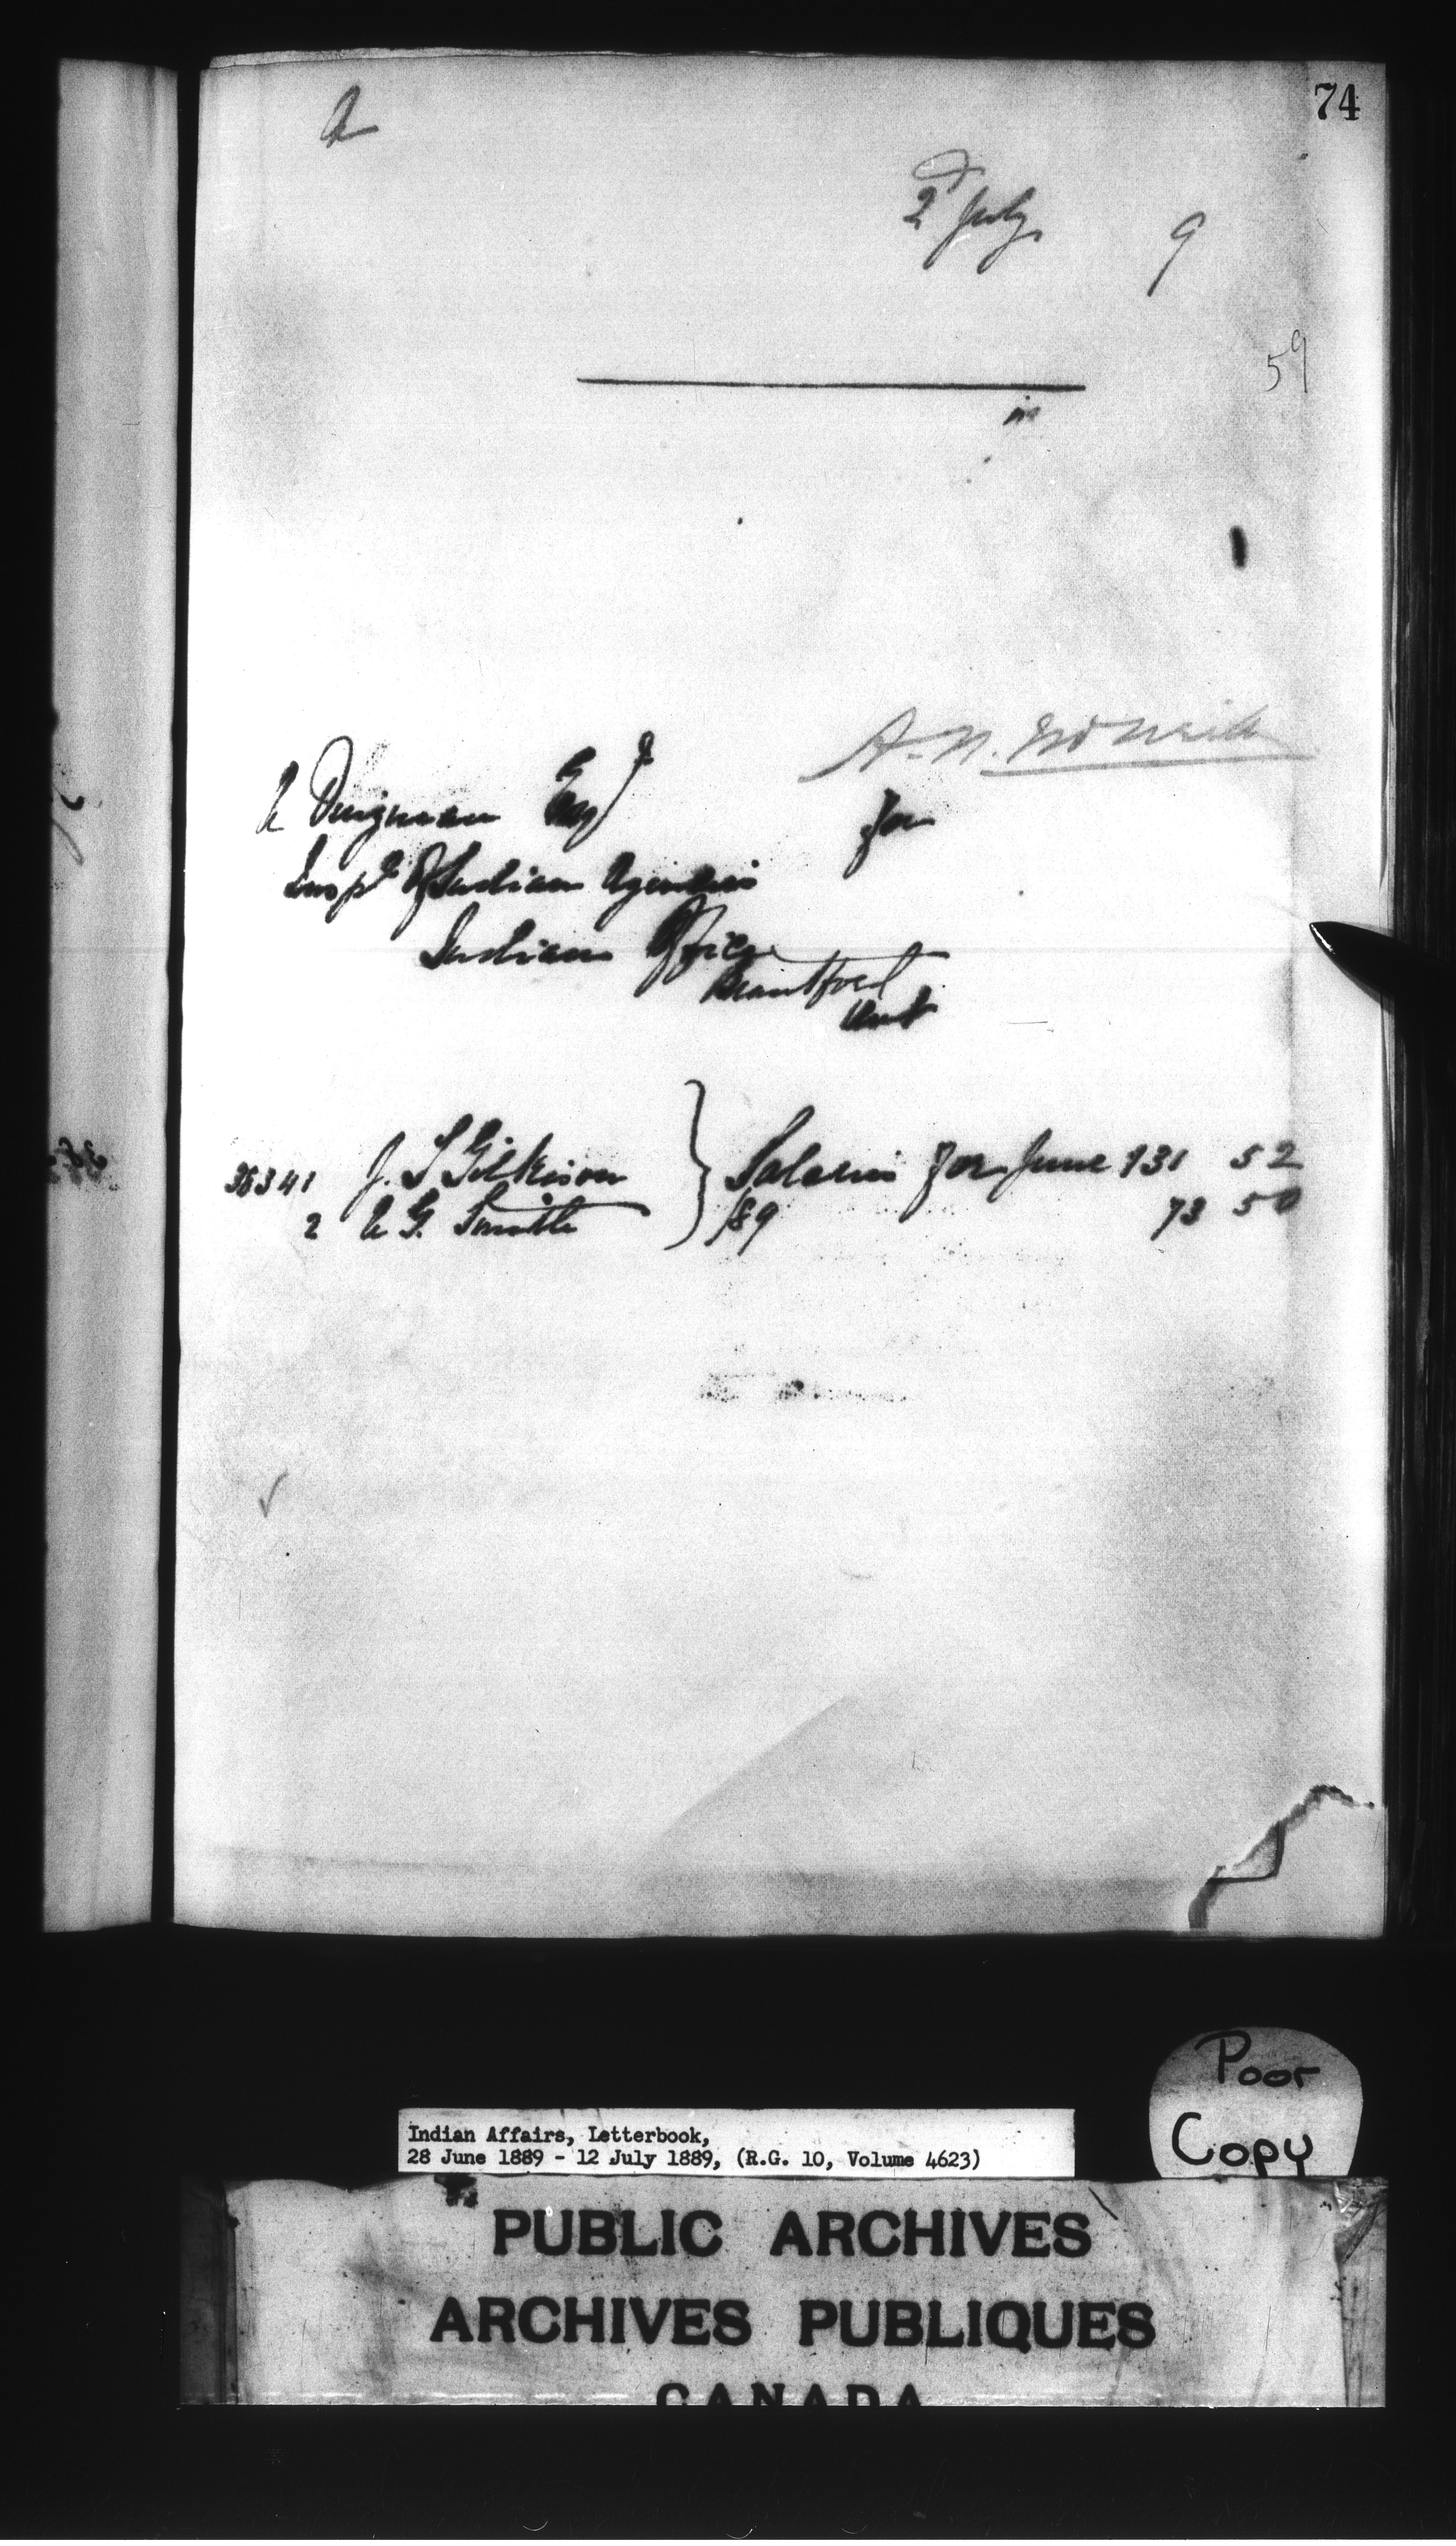 74
2d July 9
59
in
A. N. McNeill
A Dingman Esqr
for
Inspr of Indian Agencies
Indian Office
Brantford
Ont
38341 J. T Gilkison } Salaries for June 131 52
2 A G. Smith /89 73 50
Poor
Copy
Indian Affairs, Letterbook,
28 June 1889 - 12 July 1889, (R.G. 10, Volume 4623)
PUBLIC ARCHIVES
ARCHIVES PUBLIQUES
CANADA